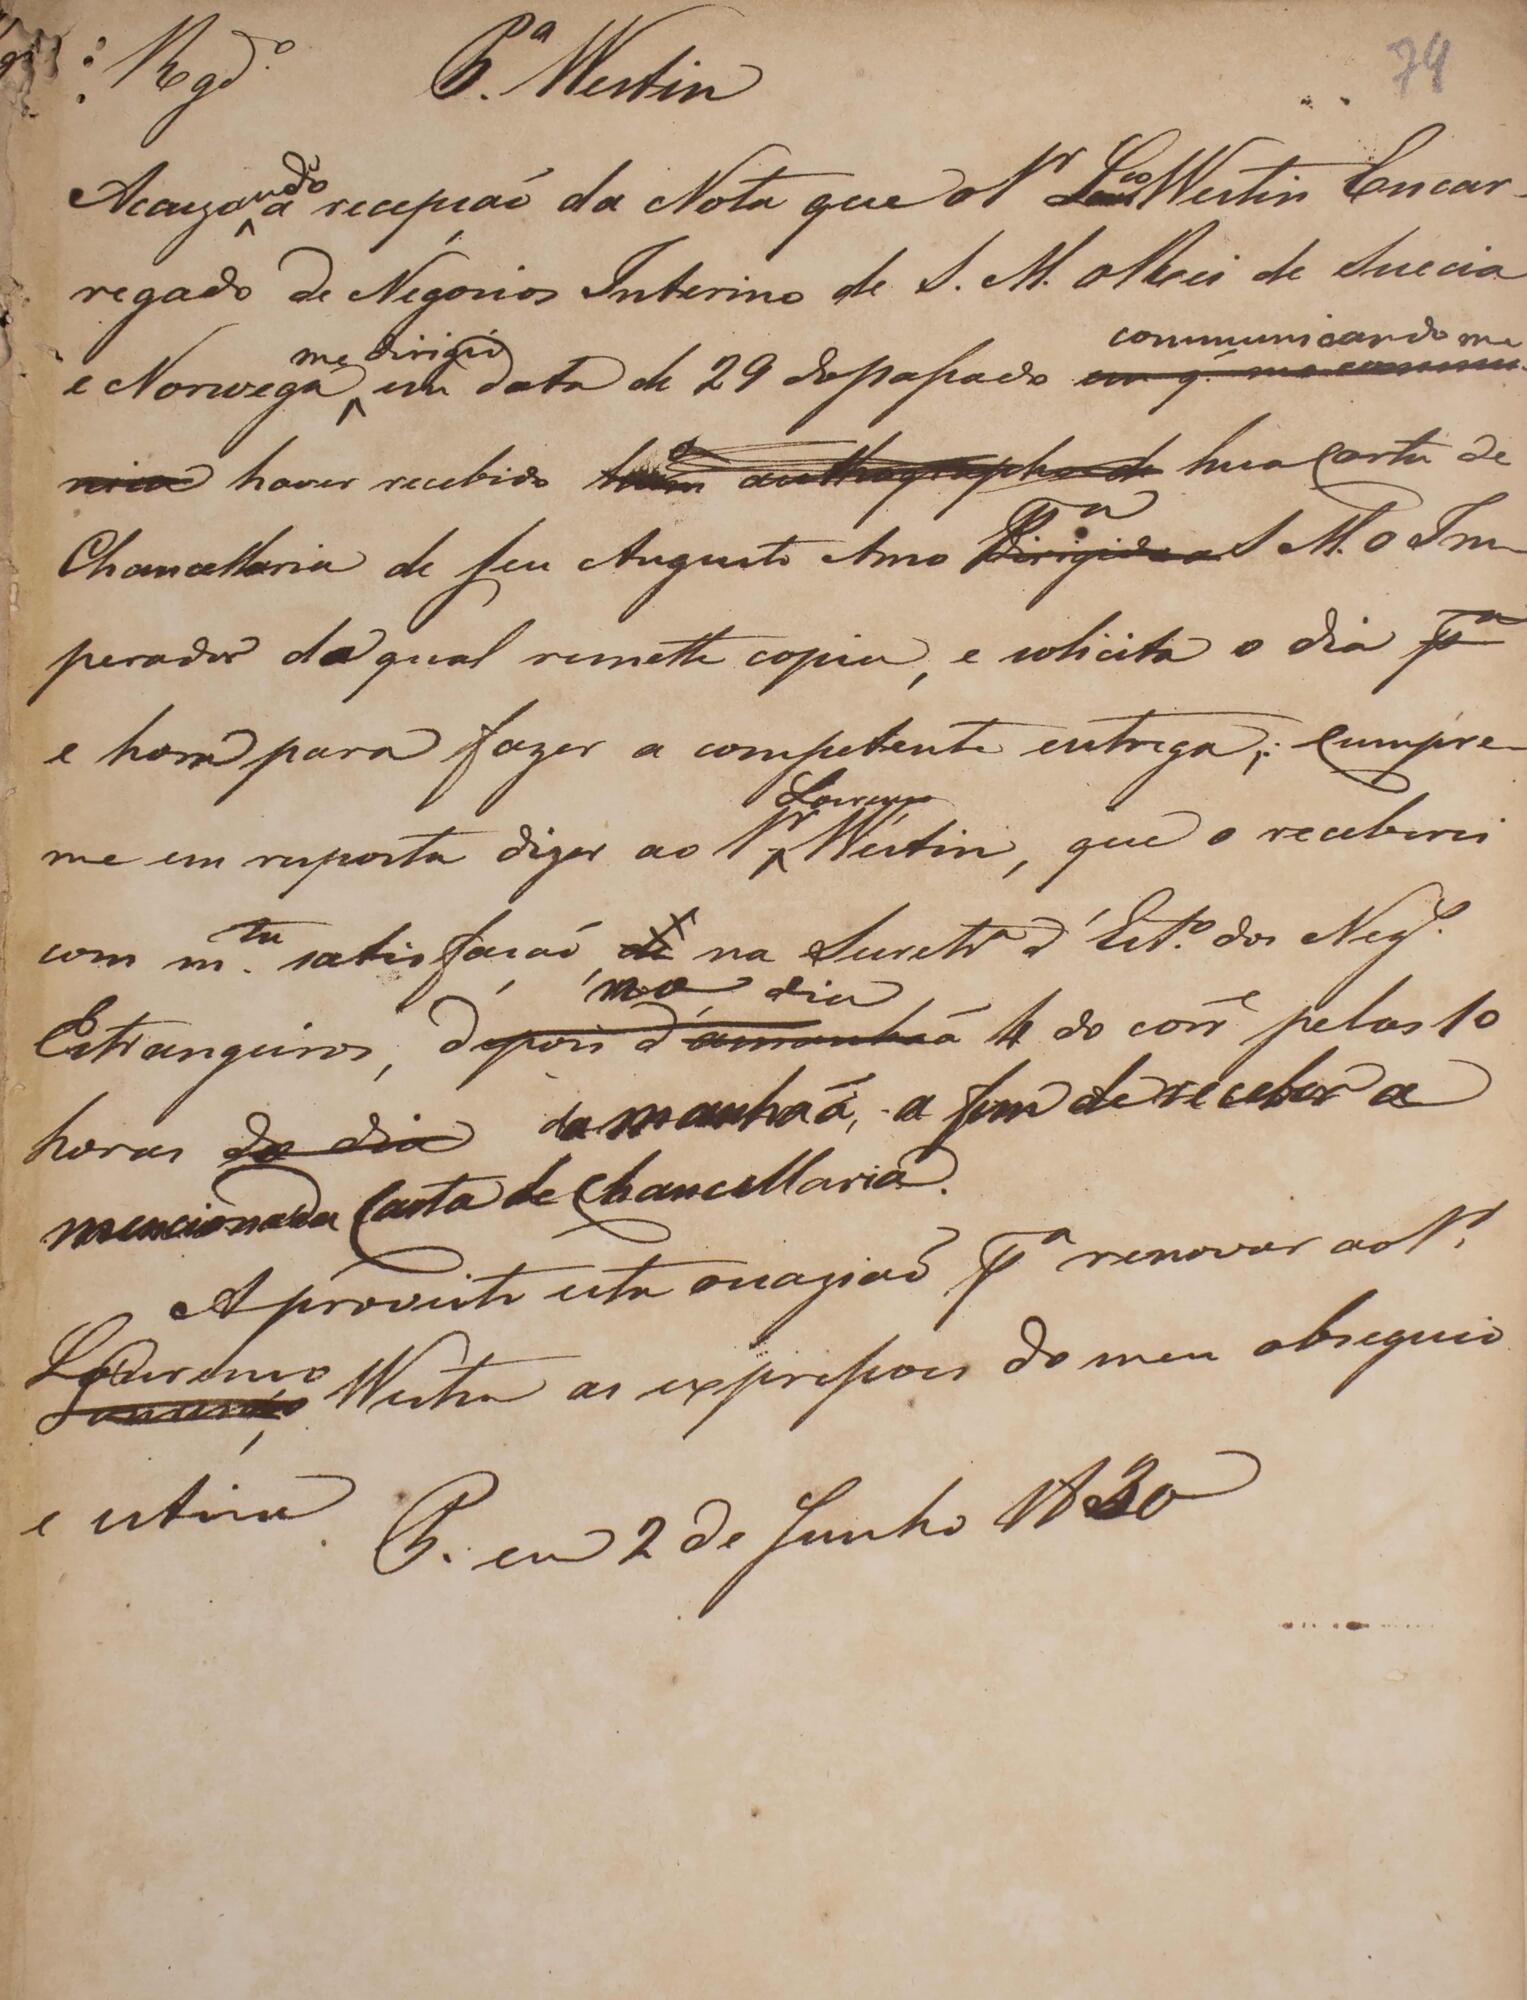 Regdo. Pa. Westin 74
Accuzando a recepção da Nota que o Sr Lço Westin Encar-
regado de Negocios Interino de S. M. o Rei de Suecia
e Norwega me dirigio em data de 29 do passado em q. me commu- communicando me
nica haver recebido hum authographo de hua Carta de
Chancellaria de seu Augusto Amo dirigida a Pa S M. O Im-
perador da qual remette copia, e solicita o dia pa
e hora para fazer a competente entrega; cumpre-
me em resposta dizer ao Sr Lourenço Westin, que o receberei
com mta. satisfação, na Secretra d'Esto. dos Negs.
Estrangeiros, depois d'amanhãa no dia 4 do corre pelas 10
horas do dia da manhãa, a fim de receber a
mencionada Carta de Chancellaria.
Aproveito esta occazião pa renovar ao Sr.
Lourenço Westin as expressoes do meu obsequio
e estima
P. em 2 de Junho 1830